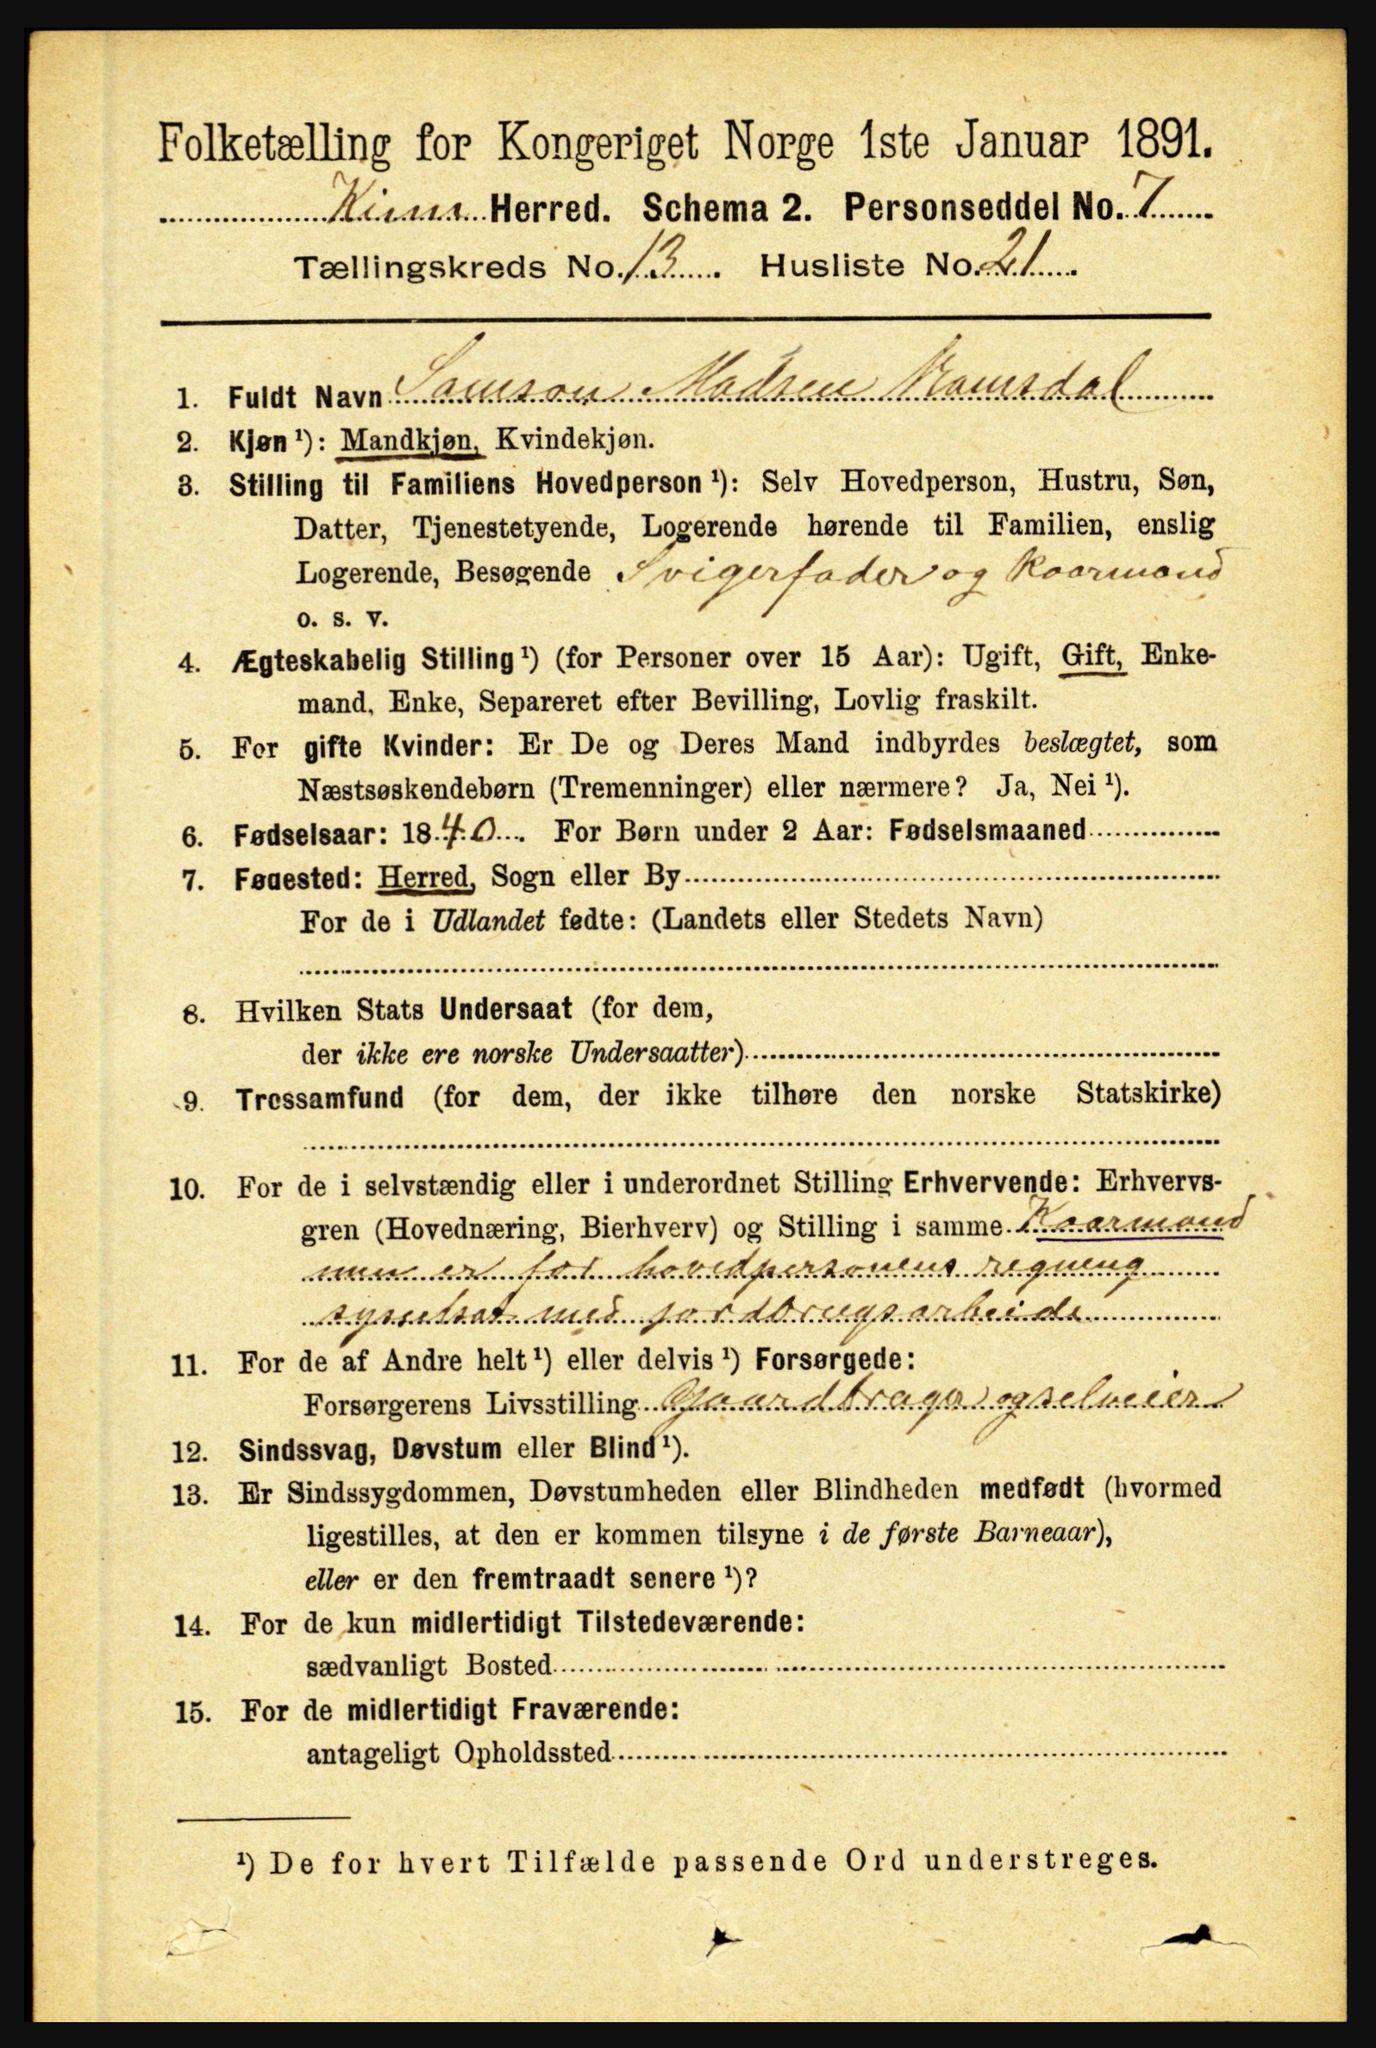 Folketælling for Kongeriget Norge 1ste Januar 1891.
Kinn Herred. Schema 2. Personseddel No. 7
Tællingskreds No. 13. Husliste No. 21.
1. Fuldt Navn Samson Madsen Ramsdal
2. Kjøn ¹): Mandkjøn, Kvindekjøn.
3. Stilling til Familiens Hovedperson ¹): Selv Hovedperson, Hustru, Søn,
Datter, Tjenestetyende, Logerende hørende til Familien, enslig
Logerende, Besøgende Svigerfader og Kaarmand
o. s. v.
4. Ægteskabelig Stilling ¹) (for Personer over 15 Aar): Ugift, Gift, Enke-
mand, Enke, Separeret efter Bevilling, Lovlig fraskilt.
5. For gifte Kvinder: Er De og Deres Mand indbyrdes beslægtet, som
Næstsøskendebørn (Tremenninger) eller nærmere? Ja, Nei ¹).
6. Fødselsaar: 1840. For Børn under 2 Aar: Fødselsmaaned
7. Fødested: Herred, Sogn eller By
For de i Udlandet fødte: (Landets eller Stedets Navn)
8. Hvilken Stats Undersaat (for dem,
der ikke ere norske Undersaatter)
9. Trossamfund (for dem, der ikke tilhøre den norske Statskirke)
10. For de i selvstændig eller i underordnet Stilling Erhvervende: Erhvervs-
gren (Hovednæring, Bierhverv) og Stilling i samme Kaarmand
men er for hovedpersonens regning
sysselsat med jordbrugsarbeide
11. For de af Andre helt ¹) eller delvis ¹) Forsørgede:
Forsørgerens Livsstilling Gaardbruger og selveier
12. Sindssvag, Døvstum eller Blind ¹).
13. Er Sindssygdommen, Døvstumheden eller Blindheden medfødt (hvormed
ligestilles, at den er kommen tilsyne i de første Barneaar),
eller er den fremtraadt senere ¹)?
14. For de kun midlertidigt Tilstedeværende:
sædvanligt Bosted
15. For de midlertidigt Fraværende:
antageligt Opholdssted
¹) De for hvert Tilfælde passende Ord understreges.